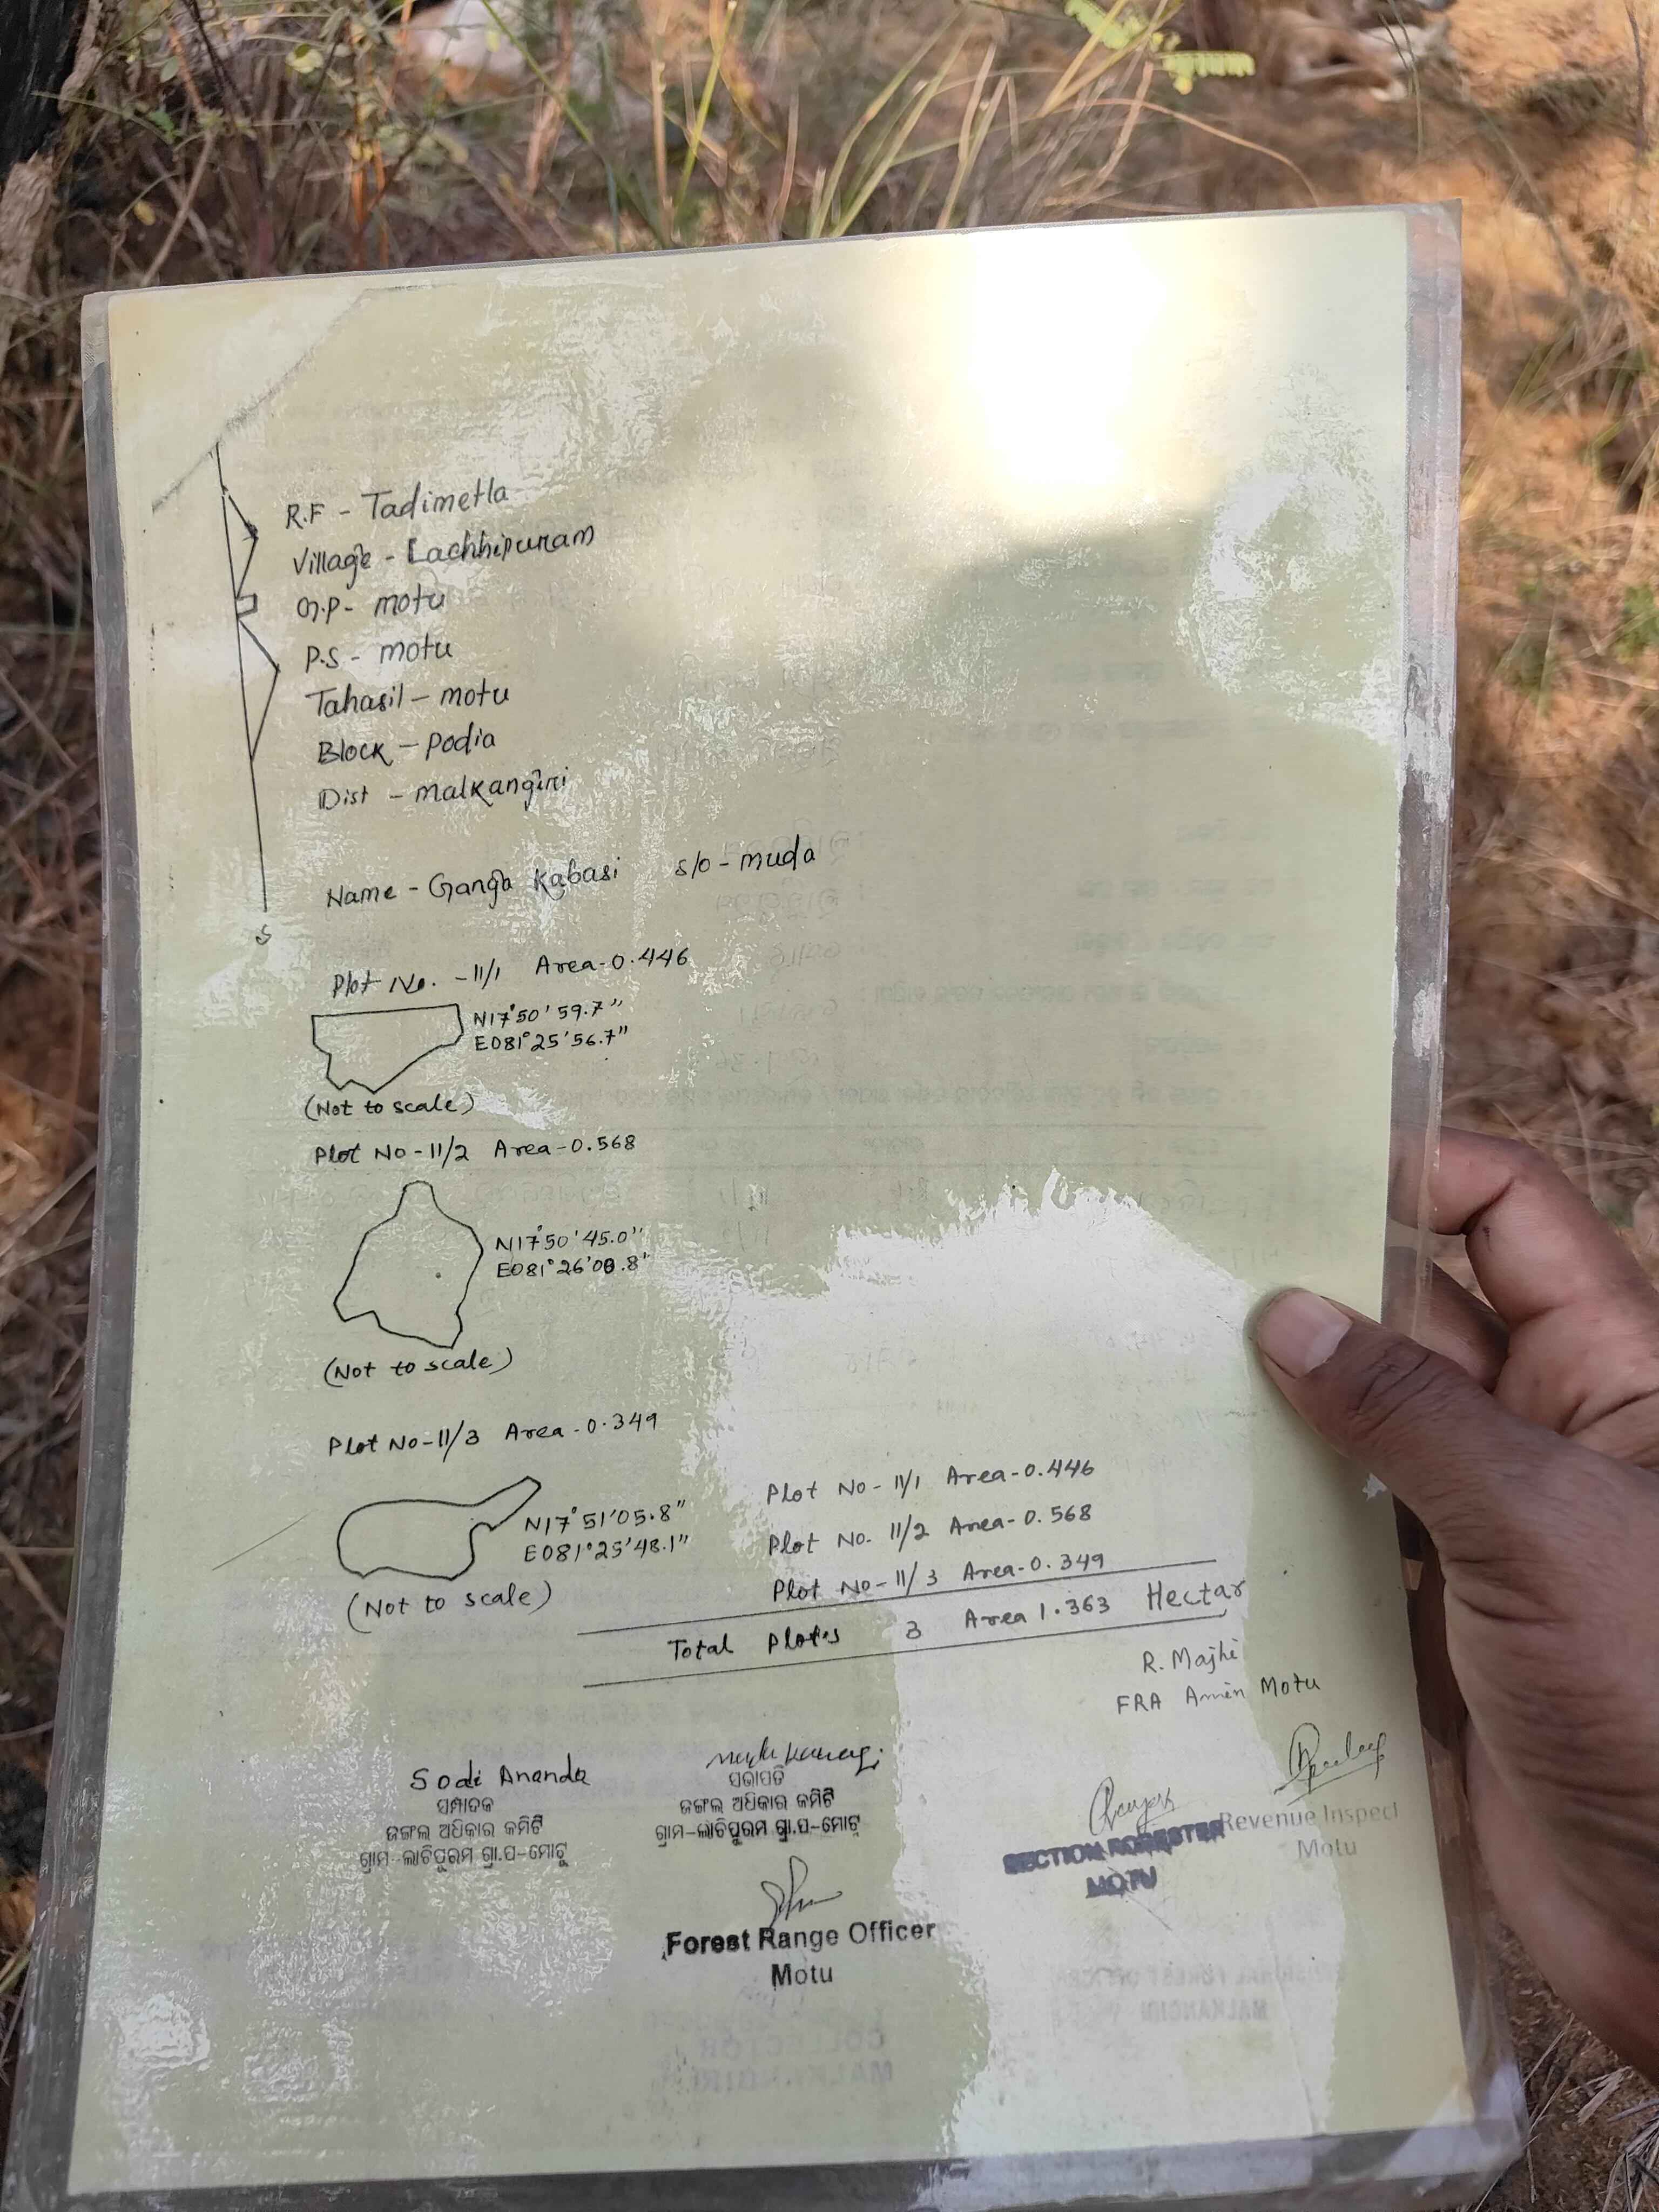 R.F - Tadimetla
Village - Lachhipuram
G.P - motu
P.S - motu
Tahasil - motu
Block - Podia
Dist - malkangiri
Name - Ganga Kabasi s/o - muda
S
Plot No. - 11/1 Area-0.446
N17°50'59.7"
E081°25'56.7"
(Not to scale)
Plot No - 11/2 Area-0.568
N17°50'45.0"
E081°26'08.8"
(Not to scale)
Plot No-11/3 Area-0.349
N17°51'05.8"
E081°25'48.1"
(Not to scale)
Plot No - 11/1 Area-0.446
Plot No. 11/2 Area-0.568
Plot No-11/3 Area-0.349
Total Plotes 3 Area 1.363 Hectar
R. Majhi
FRA Amin Motu
Sodi Ananda
ସମ୍ପାଦକ
ଜଙ୍ଗଲ ଅଧିକାର କମିଟି
ଗ୍ରାମ-ଲାଚିପୁରମ ଗ୍ରା.ପ-ମୋଟୁ
ସଭାପତି
ଜଙ୍ଗଲ ଅଧିକାର କମିଟି
ଗ୍ରାମ-ଲାଚିପୁରମ ଗ୍ରା.ପ-ମୋଟୁ
SECTION FORESTER
MOTU
Revenue Inspect
Motu
Forest Range Officer
Motu
COLLECTOR
MALKANGIRI